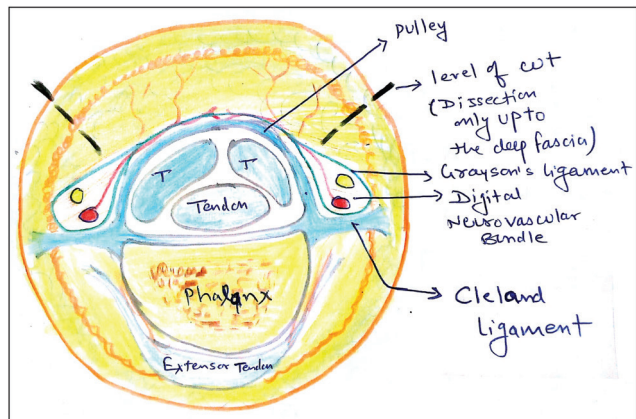 pulley
level of cut
(Dissection
only upto
the deep fascia)
Grayson's ligament
Digital
Neurovascular
Bundle
Cleland
Ligament
T
T
Tendon
Phalynx
Extensor Tendon